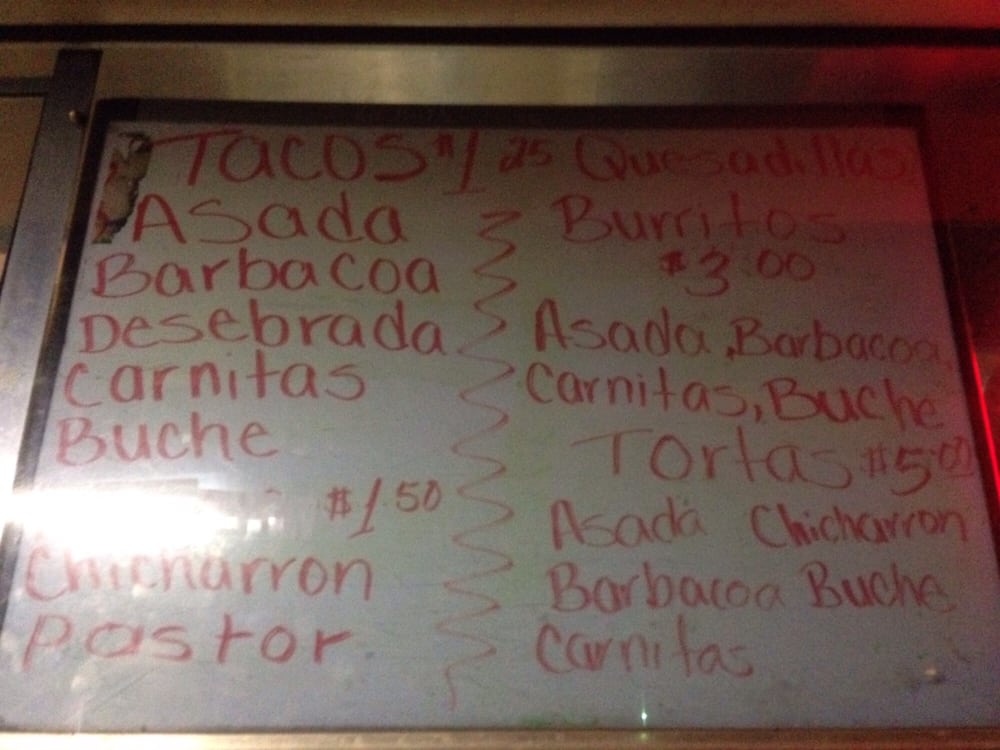 Tacos $1.25
Asada
Barbacoa
Desebrada
Carnitas
Buche
$1.50
Chicharron
Pastor
Quesadillas
Burritos
$3.00
Asada, Barbacoa
Carnitas, Buche
Tortas $5.00
Asada Chicharron
Barbacoa Buche
Carnitas